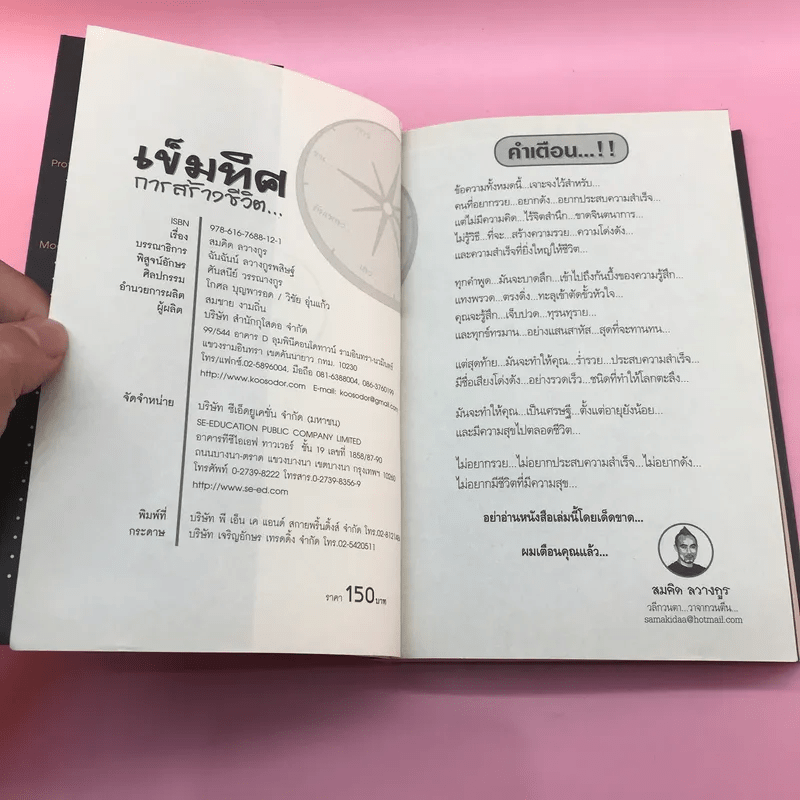 Pro
Mo
เข็มทิศ
การสร้างชีวิต...
ISBN 978-616-7688-12-1
เรื่อง สมคิด ลวางกูร
บรรณาธิการ ฉันฉันน์ ลวางกูรพสิษฐ์
พิสูจน์อักษร ศันสนีย์ วรรณางกูร
ศิลปกรรม โกศล บุญพารอด / วิชัย อุ่นแก้ว
อำนวยการผลิต สมชาย งามถิ่น
ผู้ผลิต บริษัท สำนักกุโสดอ จำกัด
99/544 อาคาร D ลุมพินีคอนโดทาวน์ รามอินทรา-นวมินทร์
แขวงรามอินทรา เขตคันนายาว กทม. 10230
โทร/แฟกซ์.02-5896004, มือถือ 081-6388004, 086-3760199
http://www.koosodor.com E-mail: koosodor@gmail.com
จัดจำหน่าย บริษัท ซีเอ็ดยูเคชั่น จำกัด (มหาชน)
SE-EDUCATION PUBLIC COMPANY LIMITED
อาคารทีซีไอเอฟ ทาวเวอร์ ชั้น 19 เลขที่ 1858/87-90
ถนนบางนา-ตราด แขวงบางนา เขตบางนา กรุงเทพฯ 10260
โทรศัพท์ 0-2739-8222 โทรสาร.0-2739-8356-9
http://www.se-ed.com
พิมพ์ที่ บริษัท พี เอ็น เค แอนด์ สกายพริ้นติ้งส์ จำกัด โทร.02-812
กระดาษ บริษัท เจริญอักษร เทรดดิ้ง จำกัด โทร.02-5420511
ราคา 150 บาท
คำเตือน...!!
ข้อความทั้งหมดนี้...เจาะจงไว้สำหรับ...
คนที่อยากรวย...อยากดัง...อยากประสบความสำเร็จ...
แต่ไม่มีความคิด...ไร้จิตสำนึก...ขาดจินตนาการ...
ไม่รู้วิธี...ที่จะ...สร้างความรวย...ความโด่งดัง...
และความสำเร็จที่ยิ่งใหญ่ให้ชีวิต...
ทุกคำพูด...มันจะบาดลึก...เข้าไปถึงก้นบึ้งของความรู้สึก...
แทงพรวด...ตรงดิ่ง...ทะลุเข้าตัดขั้วหัวใจ...
คุณจะรู้สึก...เจ็บปวด...ทุรนทุราย...
และทุกข์ทรมาน...อย่างแสนสาหัส...สุดที่จะทานทน...
แต่สุดท้าย...มันจะทำให้คุณ...ร่ำรวย...ประสบความสำเร็จ...
มีชื่อเสียงโด่งดัง...อย่างรวดเร็ว...ชนิดที่ทำให้โลกตะลึง...
มันจะทำให้คุณ...เป็นเศรษฐี...ตั้งแต่อายุยังน้อย...
และมีความสุขไปตลอดชีวิต...
ไม่อยากรวย...ไม่อยากประสบความสำเร็จ...ไม่อยากดัง...
ไม่อยากมีชีวิตที่มีความสุข...
อย่าอ่านหนังสือเล่มนี้โดยเด็ดขาด...
ผมเตือนคุณแล้ว...
สมคิด ลวางกูร
วลีกวนตา...วาจากวนตีน...
samakidaa@hotmail.com